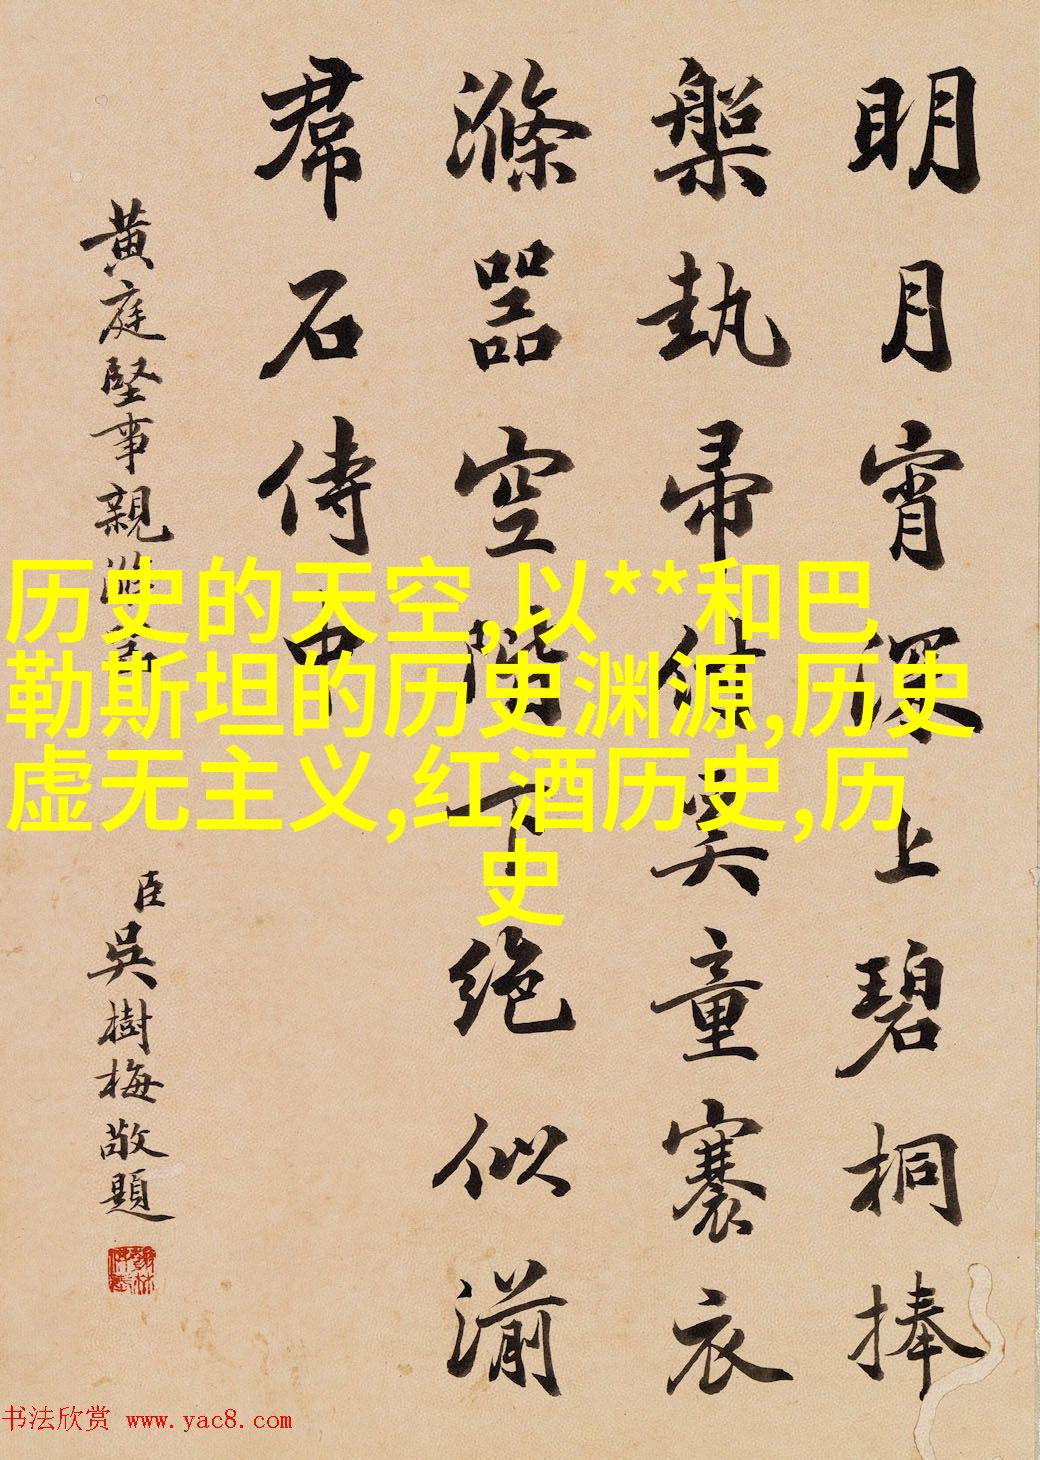 明月宵深上碧桐捧
槃執帚奚童褰衣
滌器空階下絕似湔
帬石侍中
黃庭堅事親滌器
臣吳樹梅敬題
历史的天空,以**和巴
勒斯坦的历史渊源,历史
虚无主义,红酒历史,历
史
书法欣赏 www.yac8.com